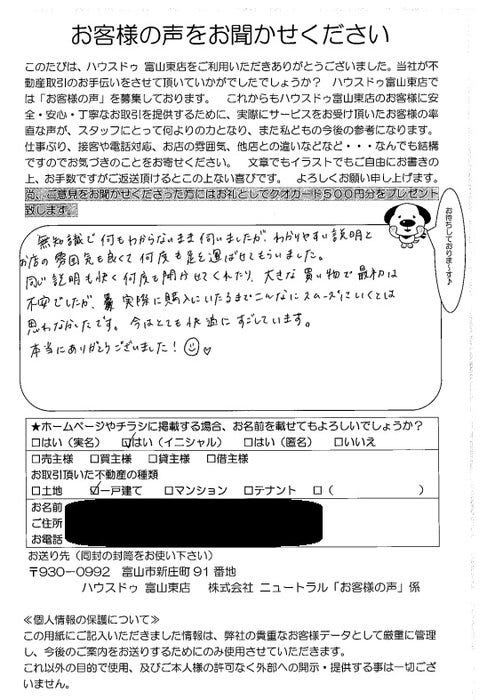 お客様の声をお聞かせください
このたびは、ハウスドゥ 富山東店をご利用いただきありがとうございました。当社が不
動産取引のお手伝いをさせて頂いていかがでしたでしょうか？ ハウスドゥ富山東店で
は「お客様の声」を募集しております。 これからもハウスドゥ富山東店のお客様に安
全・安心・丁寧なお取引を提供するために、実際にサービスをお受け頂いたお客様の率
直な声が、スタッフにとって何よりの力となり、また私どもの今後の参考になります。
仕事ぶり、接客や電話対応、お店の雰囲気、他店との違いなどなど・・・なんでも結構
ですのでお気づきのことをお寄せください。 文章でもイラストでもご自由にお書きの
上、お手数ですがご返送頂けるとこの上ない喜びです。 よろしくお願い申し上げます。
尚、ご意見をお聞かせくださった方にはお礼としてクオカード５００円分をプレゼント
致します。
お待ちしておりま～す♪
無知識で何もわからないまま伺いましたが、わかりやすい説明と
お店の雰囲気も良くて何度も足を運ばせてもらいました。
同じ説明も快く何度も聞かせてくれたり、大きな買い物で最初は
不安でしたが、実際に購入にいたるまでこんなにスムーズにいくとは
思わなかったです。今はとても快適にすごしています。
本当にありがとうございました！
★ホームページやチラシに掲載する場合、お名前を載せてもよろしいでしょうか？
□はい（実名） ☑はい（イニシャル） □はい（匿名） □いいえ
□売主様 □買主様 □貸主様 □借主様
お取引頂いた不動産の種類
□土地 ☑一戸建て □マンション □テナント □（ ）
お名前
ご住所
お電話
お送り先（同封の封筒をお使い下さい）
〒930-0992 富山市新庄町 91 番地
ハウスドゥ 富山東店 株式会社 ニュートラル「お客様の声」係
≪個人情報の保護について≫
この用紙にご記入いただきました情報は、弊社の貴重なお客様データとして厳重に管理
し、今後のご案内をお送りするためにのみ使用させていただきます。
これ以外の目的で使用、及びご本人様の許可なく外部への開示・提供する事は一切ござ
いません。